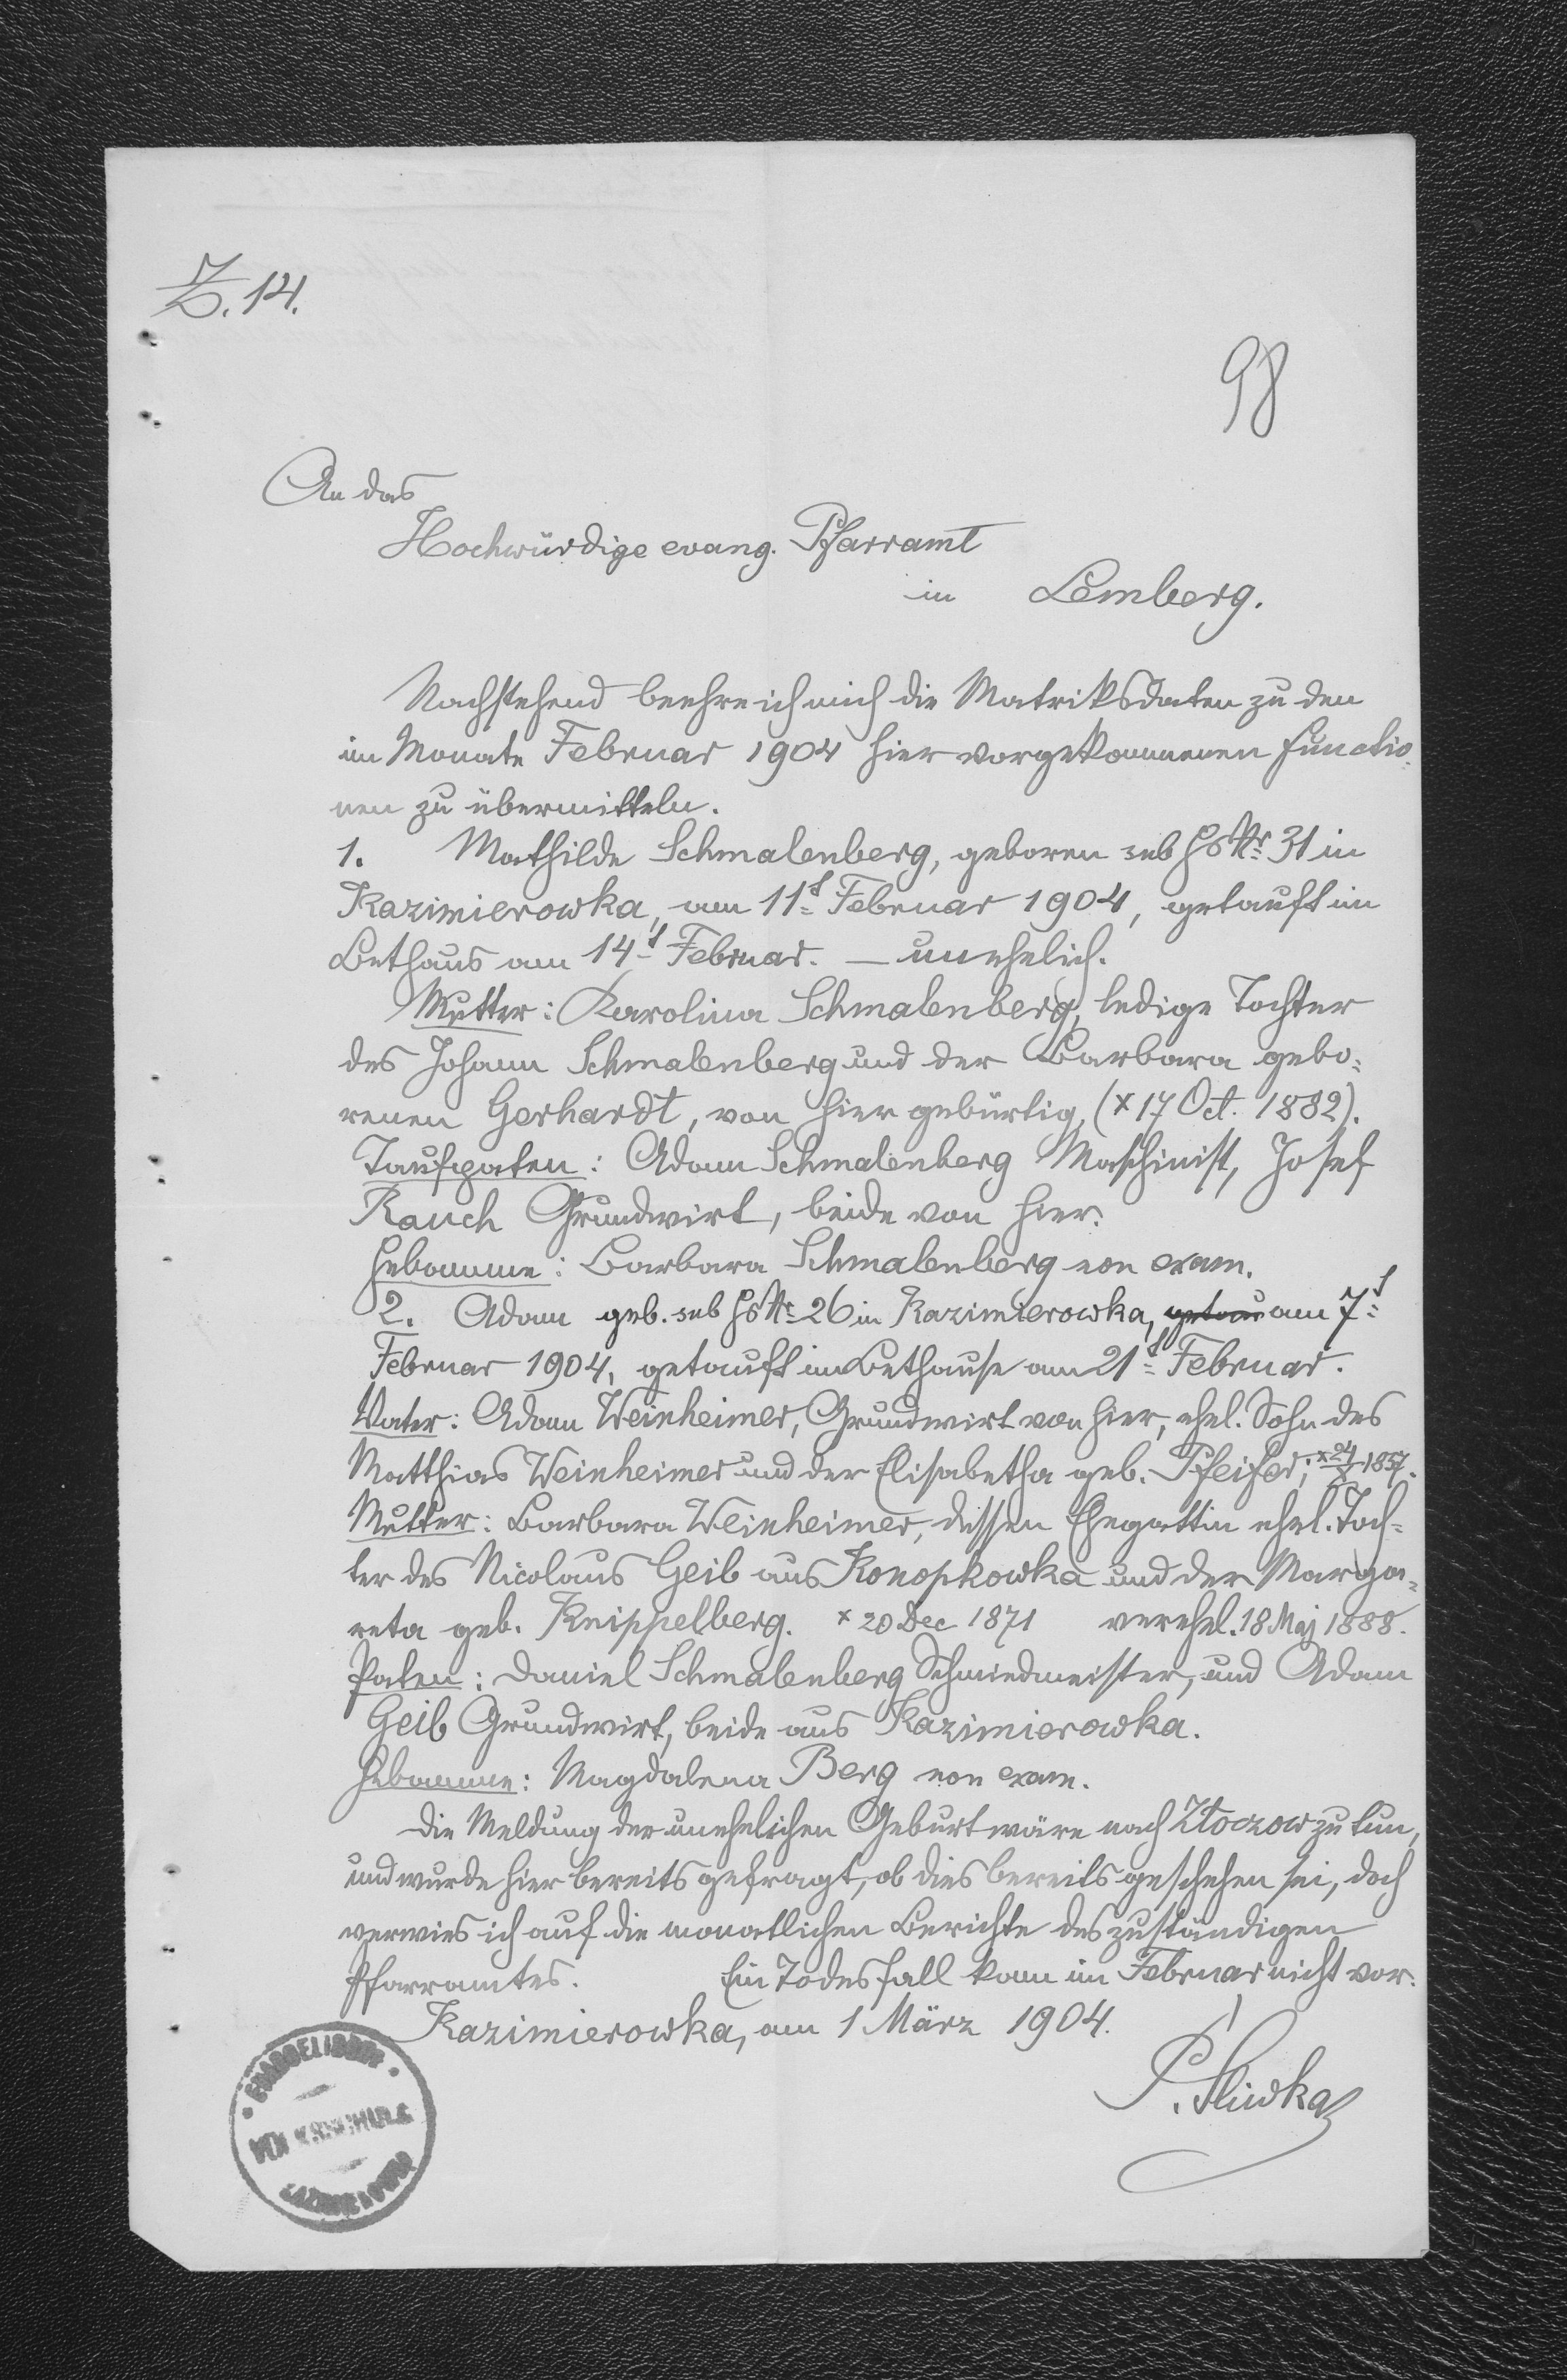 Z. 14.
98
An das
Hochwürdige evang. Pfarramt
in Lemberg.
Nachstehend beehre ich mich die Matriksdaten zu den
im Monate Februar 1904 hier vorgekommenen Functio-
nen zu übermitteln.
1. Mathilde Schmalenberg, geboren sub Hs Nr 31 in
Kazimierowka, am 11t Februar 1904, getauft im
Bethaus am 14t Februar. — unehelich.
Mutter: Karolina Schmalenberg, ledige Tochter
des Johann Schmalenberg und der Barbara gebo-
renen Gerhardt, von hier gebürtig, (x 17 Oct. 1882).
Taufpaten: Adam Schmalenberg Maschinist, Josef
Rauch Grundwirt, beide von hier.
Hebamme: Barbara Schmalenberg non exam.
2. Adam geb. sub Hs Nr 26 in Kazimierowka, am 7t
Februar 1904, getauft im Bethause am 21t Februar.
Vater: Adam Weinheimer, Grundwirt von hier, ehel. Sohn des
Matthias Weinheimer und der Elisabetha geb. Pfeifer; 1857.
Mutter: Barbara Weinheimer, dessen Ehegattin ehel. Toch-
ter des Nicolaus Geib aus Konopkowka und der Marga-
reta geb. Knippelberg. x 20 Dec 1871 verehel. 18 Maj 1888.
Paten: Daniel Schmalenberg Schmiedmeister, und Adam
Geib Grundwirt, beide aus Kazimierowka.
Hebamme: Magdalena Berg non exam.
Die Meldung der unehelichen Geburt wäre nach Złoczow zu tun,
und wurde hier bereits gefragt, ob dies bereits geschehen sei, doch
verwies ich auf die monatlichen Berichte des zuständigen
Pfarramtes. Ein Todesfall kam im Februar nicht vor.
Kazimierowka, am 1 März 1904.
P. Sliwka
EVANGELISCHE
VOLKSSCHULE
KAZIMIEROWKA